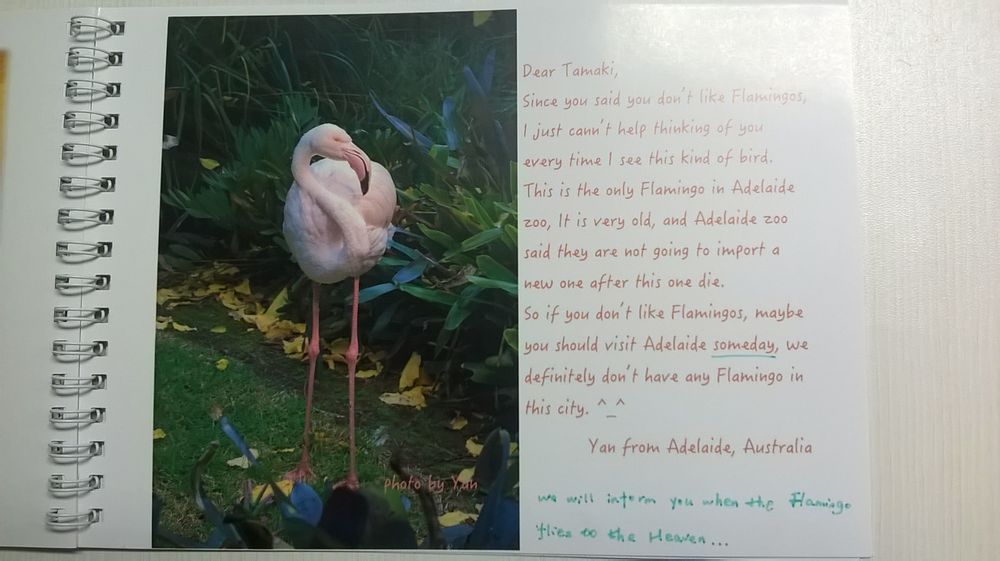 Dear Tamaki,
Since you said you don't like Flamingos,
I just cann't help thinking of you
every time I see this kind of bird.
This is the only Flamingo in Adelaide
zoo, It is very old, and Adelaide zoo
said they are not going to import a
new one after this one die.
So if you don't like Flamingos, maybe
you should visit Adelaide someday, we
definitely don't have any Flamingo in
this city. ^_^
Yan from Adelaide, Australia
Photo by Yan
we will inform you when the Flamingo
flies to the Heaven...